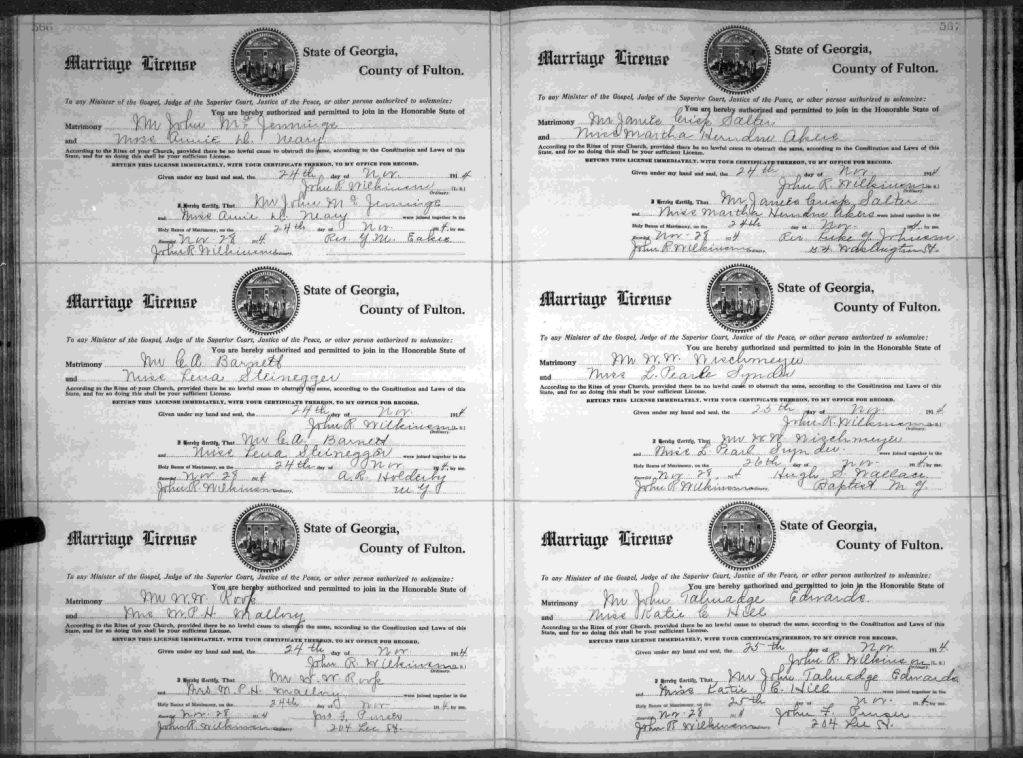 566
Marriage License
State of Georgia,
County of Fulton.
To any Minister of the Gospel, Judge of the Superior Court, Justice of the Peace, or other person authorized to solemnize:
You are hereby authorized and permitted to join in the Honorable State of
Matrimony Mr John Mc Jennings
and Miss Annie D. Neary
According to the Rites of your Church, provided there be no lawful cause to obstruct the same, according to the Constitution and Laws of this
State, and for so doing this shall be your sufficient License.
RETURN THIS LICENSE IMMEDIATELY, WITH YOUR CERTIFICATE THEREON, TO MY OFFICE FOR RECORD.
Given under my hand and seal, the 24th day of Nov. 1914
John R. Wilkinson (L. S.)
Ordinary.
I Hereby Certify, That Mr John Mc Jennings
and Miss Annie D. Neary were joined together in the
Holy Banns of Matrimony, on the 24th day of Nov. 1914, by me.
Recorded Nov 28 1914 Rev. G.M. Eakes
John R Wilkinson Ordinary.
Marriage License
State of Georgia,
County of Fulton.
To any Minister of the Gospel, Judge of the Superior Court, Justice of the Peace, or other person authorized to solemnize:
You are hereby authorized and permitted to join in the Honorable State of
Matrimony Mr C.A. Barnett
and Miss Lena Steinegger
According to the Rites of your Church, provided there be no lawful cause to obstruct the same, according to the Constitution and Laws of this
State, and for so doing this shall be your sufficient License.
RETURN THIS LICENSE IMMEDIATELY, WITH YOUR CERTIFICATE THEREON, TO MY OFFICE FOR RECORD.
Given under my hand and seal, the 24th day of Nov. 1914
John R. Wilkinson (L. S.)
Ordinary.
I Hereby Certify, That Mr C.A. Barnett
and Miss Lena Steinegger were joined together in the
Holy Banns of Matrimony, on the 24th day of Nov 1914, by me.
Recorded Nov. 28 1914 A.R. Holderby
John R. Wilkinson Ordinary. M G
Marriage License
State of Georgia,
County of Fulton.
To any Minister of the Gospel, Judge of the Superior Court, Justice of the Peace, or other person authorized to solemnize:
You are hereby authorized and permitted to join in the Honorable State of
Matrimony Mr W.W. Rook
and Mrs M.P.H. Mallory
According to the Rites of your Church, provided there be no lawful cause to obstruct the same, according to the Constitution and Laws of this
State, and for so doing this shall be your sufficient License.
RETURN THIS LICENSE IMMEDIATELY, WITH YOUR CERTIFICATE THEREON, TO MY OFFICE FOR RECORD.
Given under my hand and seal, the 24th day of Nov 1914
John R. Wilkinson (L. S.)
Ordinary.
I Hereby Certify, That Mr W. W Rook
and Mrs M.P.H. Mallory were joined together in the
Holy Banns of Matrimony, on the 24th day of Nov 1914, by me.
Recorded Nov. 28 1914 Jno F. Purser
John R Wilkinson Ordinary. 204 Lee St.
567
Marriage License
State of Georgia,
County of Fulton.
To any Minister of the Gospel, Judge of the Superior Court, Justice of the Peace, or other person authorized to solemnize:
You are hereby authorized and permitted to join in the Honorable State of
Matrimony Mr Crisp Salter
and Miss Martha Herndon Akers
According to the Rites of your Church, provided there be no lawful cause to obstruct the same, according to the Constitution and Laws of this
State, and for so doing this shall be your sufficient License.
RETURN THIS LICENSE IMMEDIATELY, WITH YOUR CERTIFICATE THEREON, TO MY OFFICE FOR RECORD.
Given under my hand and seal, the 24th day of Nov 1914
John R. Wilkinson (L. S.)
Ordinary.
I Hereby Certify, That Mr Crisp Salter
and Miss Martha Herndon Akers were joined together in the
Holy Banns of Matrimony, on the 24th day of Nov. 1914, by me.
Recorded Nov. 28 1914 Rev. Luke G Johnson
John R. Wilkinson Ordinary. Washington St.
Marriage License
State of Georgia,
County of Fulton.
To any Minister of the Gospel, Judge of the Superior Court, Justice of the Peace, or other person authorized to solemnize:
You are hereby authorized and permitted to join in the Honorable State of
Matrimony Mr W.W. Wischmeyer
and Miss L. Pearle Synder
According to the Rites of your Church, provided there be no lawful cause to obstruct the same, according to the Constitution and Laws of this
State, and for so doing this shall be your sufficient License.
RETURN THIS LICENSE IMMEDIATELY, WITH YOUR CERTIFICATE THEREON, TO MY OFFICE FOR RECORD.
Given under my hand and seal, the 25th day of Nov 1914
John R. Wilkinson (L. S.)
Ordinary.
I Hereby Certify, That Mr W.W. Wischmeyer
and Miss L Pearl Synder were joined together in the
Holy Banns of Matrimony, on the 26th day of Nov. 1914, by me.
Recorded Nov. 28, 1914 Hugh S. Wallace
John R. Wilkinson Ordinary. Baptist M G.
Marriage License
State of Georgia,
County of Fulton.
To any Minister of the Gospel, Judge of the Superior Court, Justice of the Peace, or other person authorized to solemnize:
You are hereby authorized and permitted to join in the Honorable State of
Matrimony Mr John Talmadge Edwards
and Miss Katie E Hill
According to the Rites of your Church, provided there be no lawful cause to obstruct the same, according to the Constitution and Laws of this
State, and for so doing this shall be your sufficient License.
RETURN THIS LICENSE IMMEDIATELY, WITH YOUR CERTIFICATE THEREON, TO MY OFFICE FOR RECORD.
Given under my hand and seal, the 25th day of Nov. 1914
John R. Wilkinson (L. S.)
Ordinary.
I Hereby Certify, That Mr John Talmadge Edwards
and Miss Katie E. Hill were joined together in the
Holy Banns of Matrimony, on the 25th day of Nov. 1914, by me.
Recorded Nov. 28 1914 John F. Purser
John R Wilkinson Ordinary. 204 Lee St.